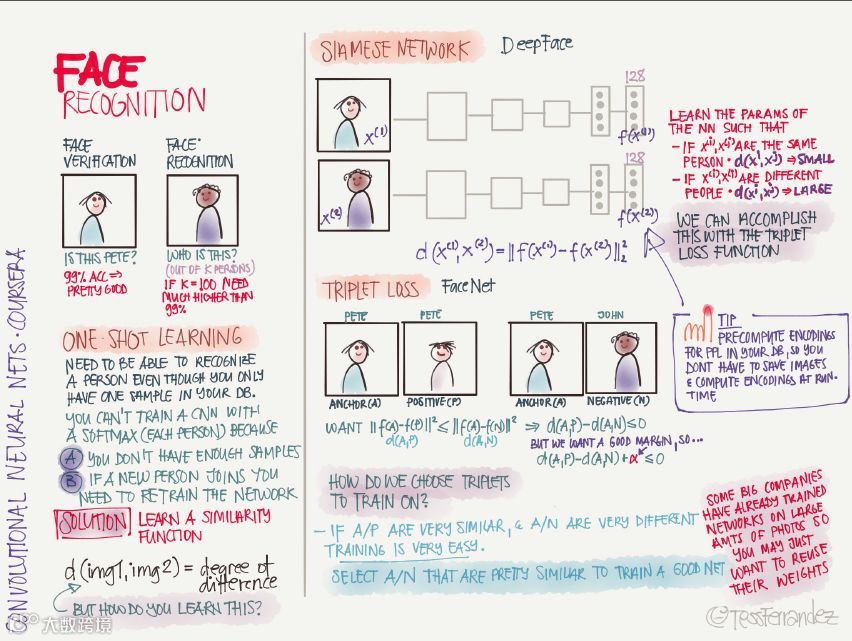 FACE
RECOGNITION
FACE
VERIFICATION
IS THIS PETE?
99% ACC ⇒
PRETTY GOOD
FACE·
RECOGNITION
WHO IS THIS?
(OUT OF K PERSONS)
IF K=100 NEED
MUCH HIGHER THAN
99%
ONE·SHOT LEARNING
NEED TO BE ABLE TO RECOGNIZE
A PERSON EVEN THOUGH YOU ONLY
HAVE ONE SAMPLE IN YOUR DB.
YOU CAN'T TRAIN A CNN WITH
A SOFTMAX (EACH PERSON) BECAUSE
A YOU DON'T HAVE ENOUGH SAMPLES
B IF A NEW PERSON JOINS YOU
NEED TO RETRAIN THE NETWORK
SOLUTION LEARN A SIMILARITY
FUNCTION
d(img1, img2) = degree of
difference
BUT HOW DO YOU LEARN THIS?
CONVOLUTIONAL NEURAL NETS · COURSERA
大数跨境
SIAMESE NETWORK DeepFace
x⁽¹⁾
128
f(x⁽¹⁾)
x⁽²⁾
128
f(x⁽²⁾)
d(x⁽¹⁾, x⁽²⁾) = ‖f(x⁽¹⁾) – f(x⁽²⁾)‖₂²
LEARN THE PARAMS OF
THE NN SUCH THAT
– IF x⁽ⁱ⁾, x⁽ʲ⁾ ARE THE SAME
PERSON · d(xⁱ, xʲ) ⇒ SMALL
– IF x⁽ⁱ⁾, x⁽ʲ⁾ ARE DIFFERENT
PEOPLE · d(xⁱ, xʲ) ⇒ LARGE
WE CAN ACCOMPLISH
THIS WITH THE TRIPLET
LOSS FUNCTION
TIP
PRECOMPUTE ENCODINGS
FOR PPL IN YOUR DB, SO YOU
DONT HAVE TO SAVE IMAGES
& COMPUTE ENCODINGS AT RUN-
TIME
TRIPLET LOSS FaceNet
PETE PETE PETE JOHN
ANCHOR(A) POSITIVE(P) ANCHOR(A) NEGATIVE(N)
WANT ‖f(A)–f(P)‖² ≤ ‖f(A)–f(N)‖² ⇒ d(A,P) – d(A,N) ≤ 0
d(A,P) d(A,N)
BUT WE WANT A GOOD MARGIN, SO...
d(A,P) – d(A,N) + α ≤ 0
HOW DO WE CHOOSE TRIPLETS
TO TRAIN ON?
– IF A/P ARE VERY SIMILAR, & A/N ARE VERY DIFFERENT
TRAINING IS VERY EASY.
SELECT A/N THAT ARE PRETTY SIMILAR TO TRAIN A GOOD NET
SOME BIG COMPANIES
HAVE ALREADY TRAINED
NETWORKS ON LARGE
AMTS OF PHOTOS SO
YOU MAY JUST
WANT TO REUSE
THEIR WEIGHTS
@TessFerrandez